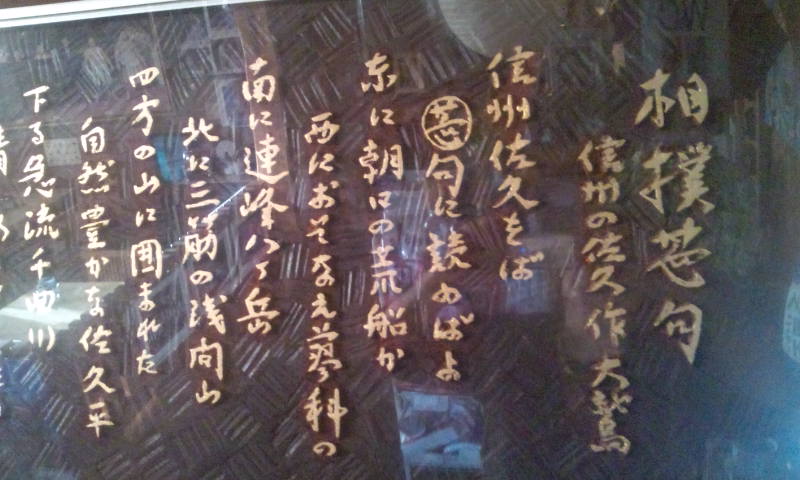 相撲甚句
信州の佐久 作 大鷲
信州佐久をば
甚句に読めばよ
東に朝日の荒船か
西におそなえ蓼科の
南に連峰八ヶ岳
北に三筋の浅間山
四方の山に囲まれた
自然豊かな佐久平
下る急流千曲川